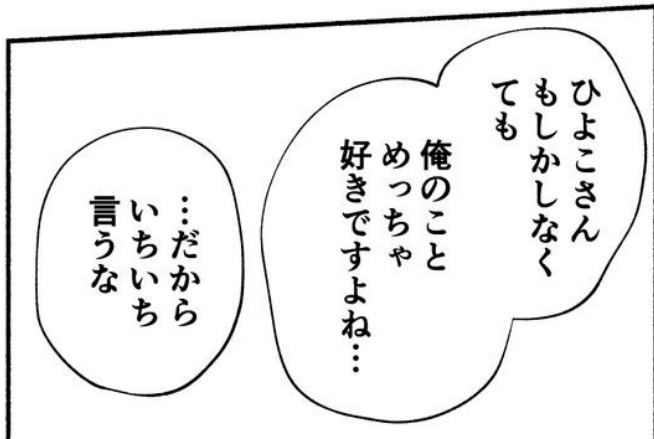 ひよこさん
もしかしなく
ても
俺のこと
めっちゃ
好きですよね…
…だから
いちいち
言うな